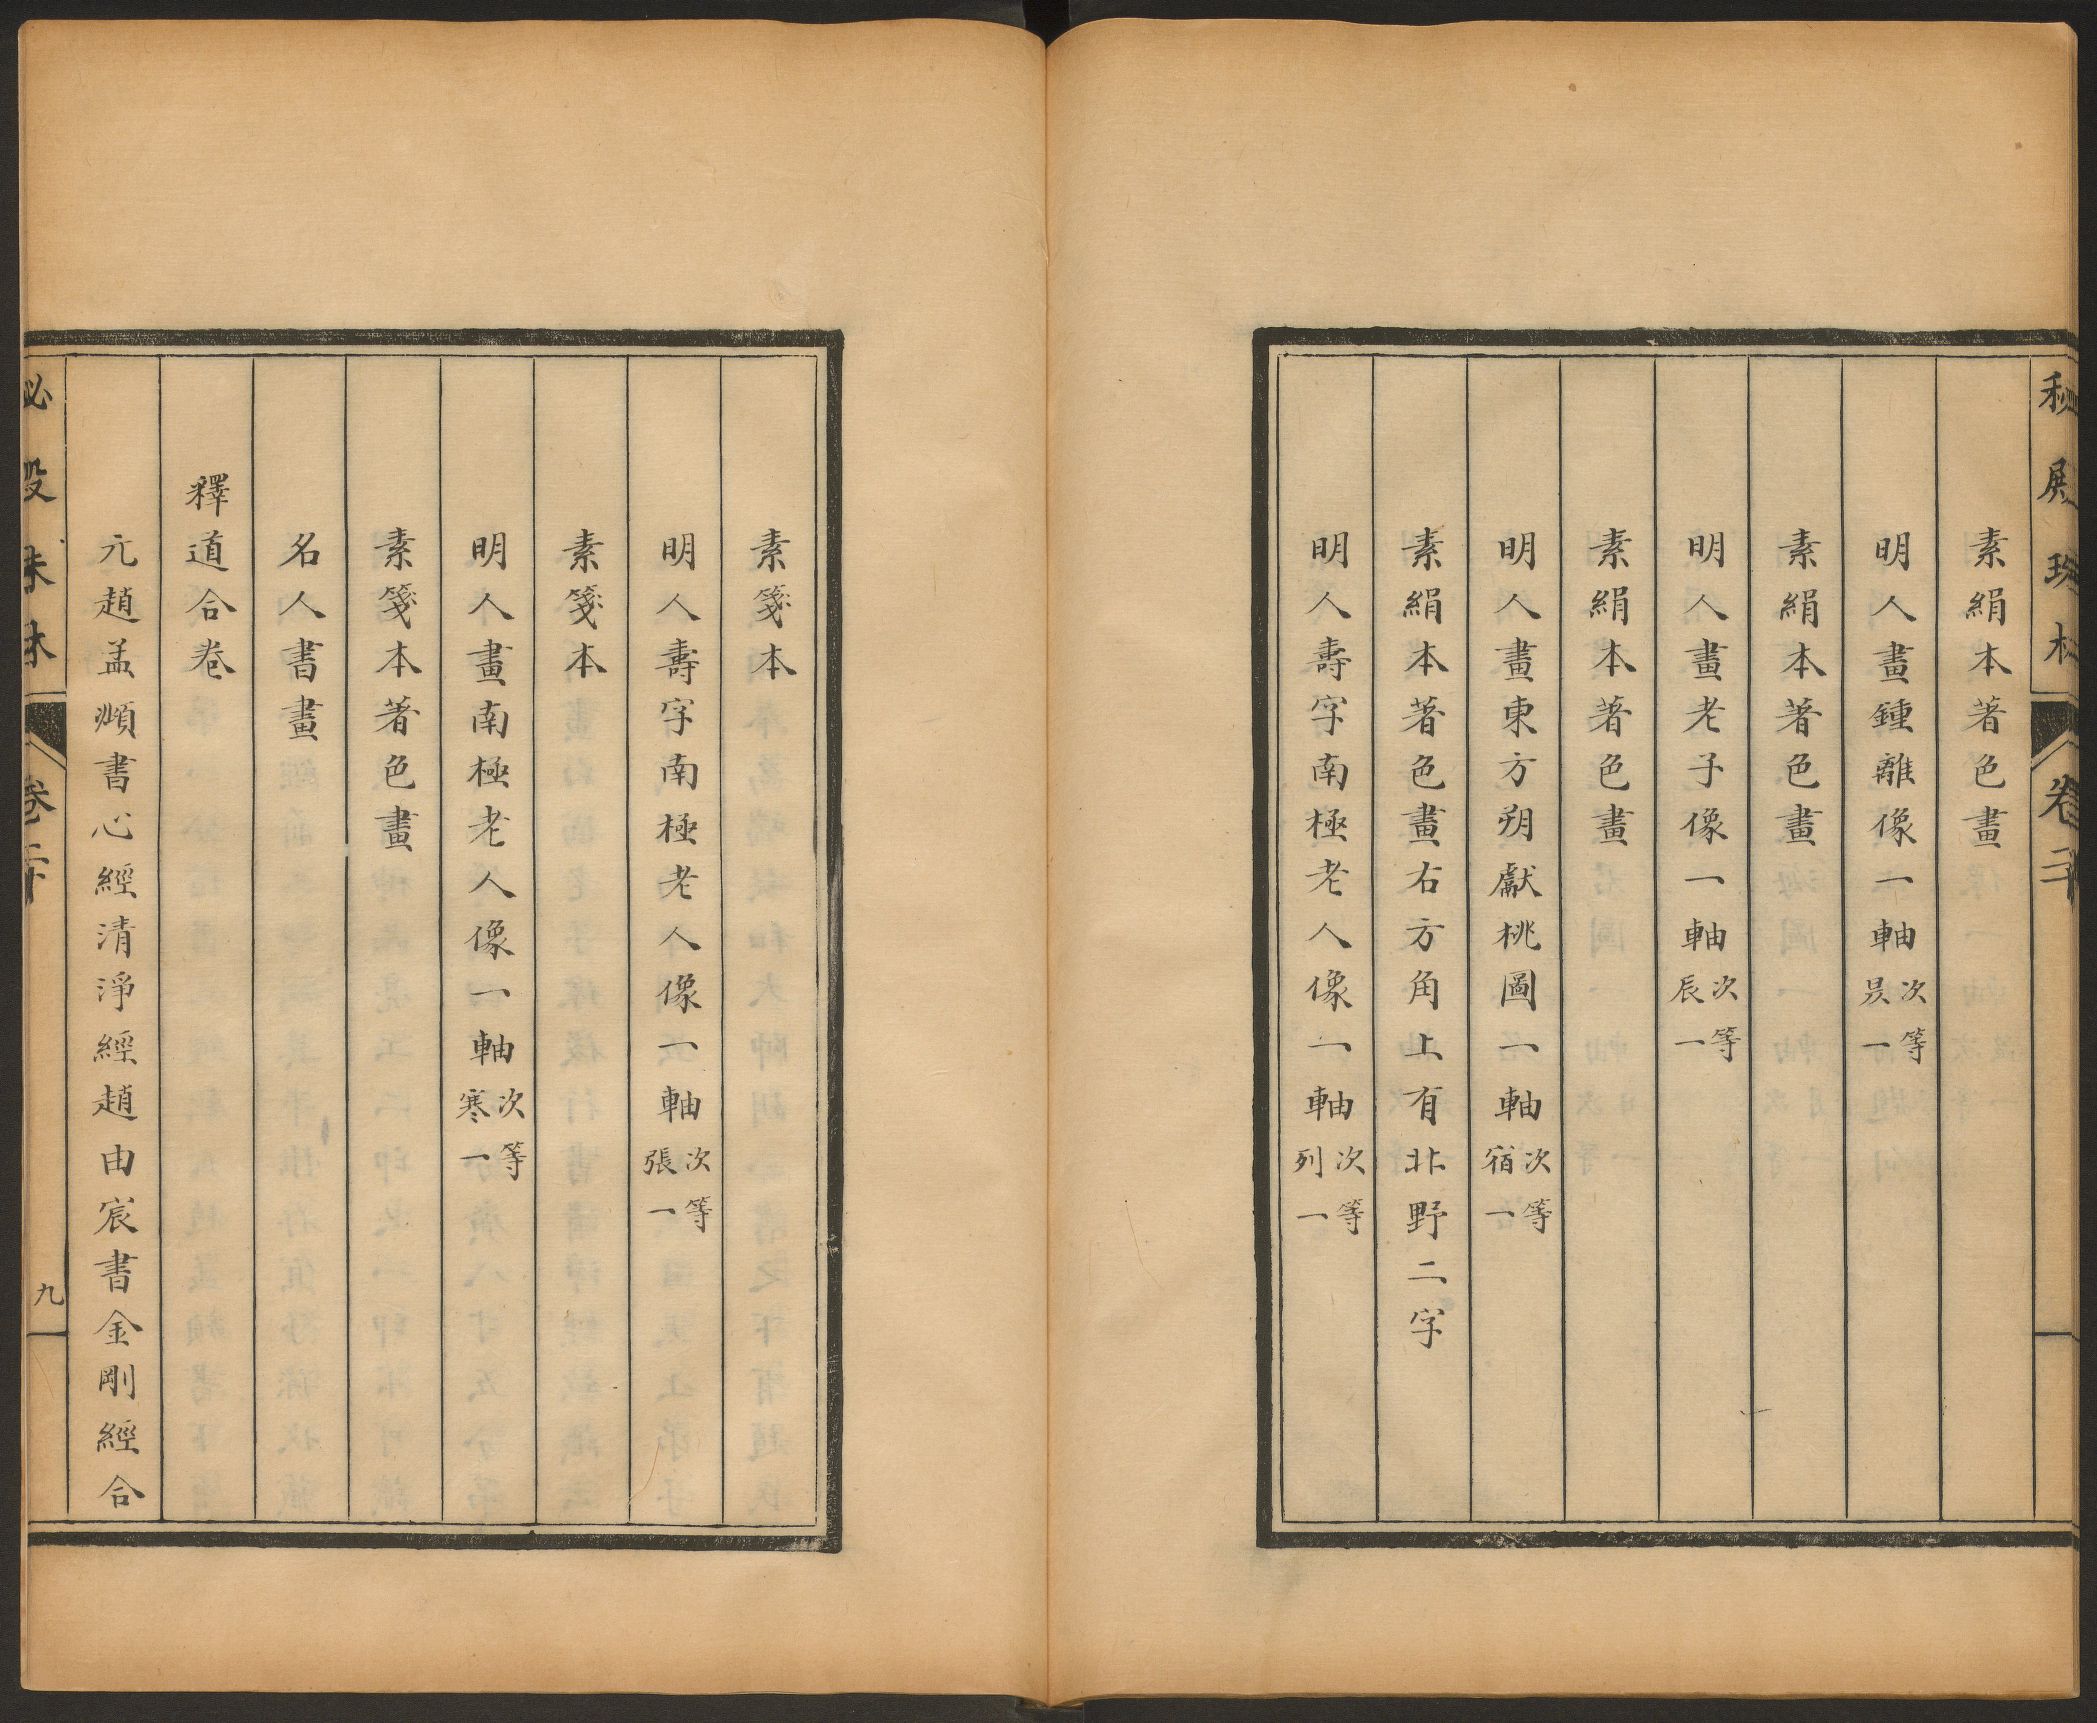 秘殿珠林 卷二十
素絹本著色畫
明人畫鍾離像一軸次等昃一
素絹本著色畫
明人畫老子像一軸次等辰一
素絹本著色畫
明人畫東方朔獻桃圖一軸次等宿一
素絹本著色畫右方角上有北野二字
明人壽字南極老人像一軸次等列一
素箋本
明人壽字南極老人像一軸次等張一
素箋本
明人畫南極老人像一軸次等寒一
素箋本著色畫
名人書畫
釋道合卷
元趙孟頫書心經清淨經趙由宸書金剛經合
秘殿珠林 卷二十 九